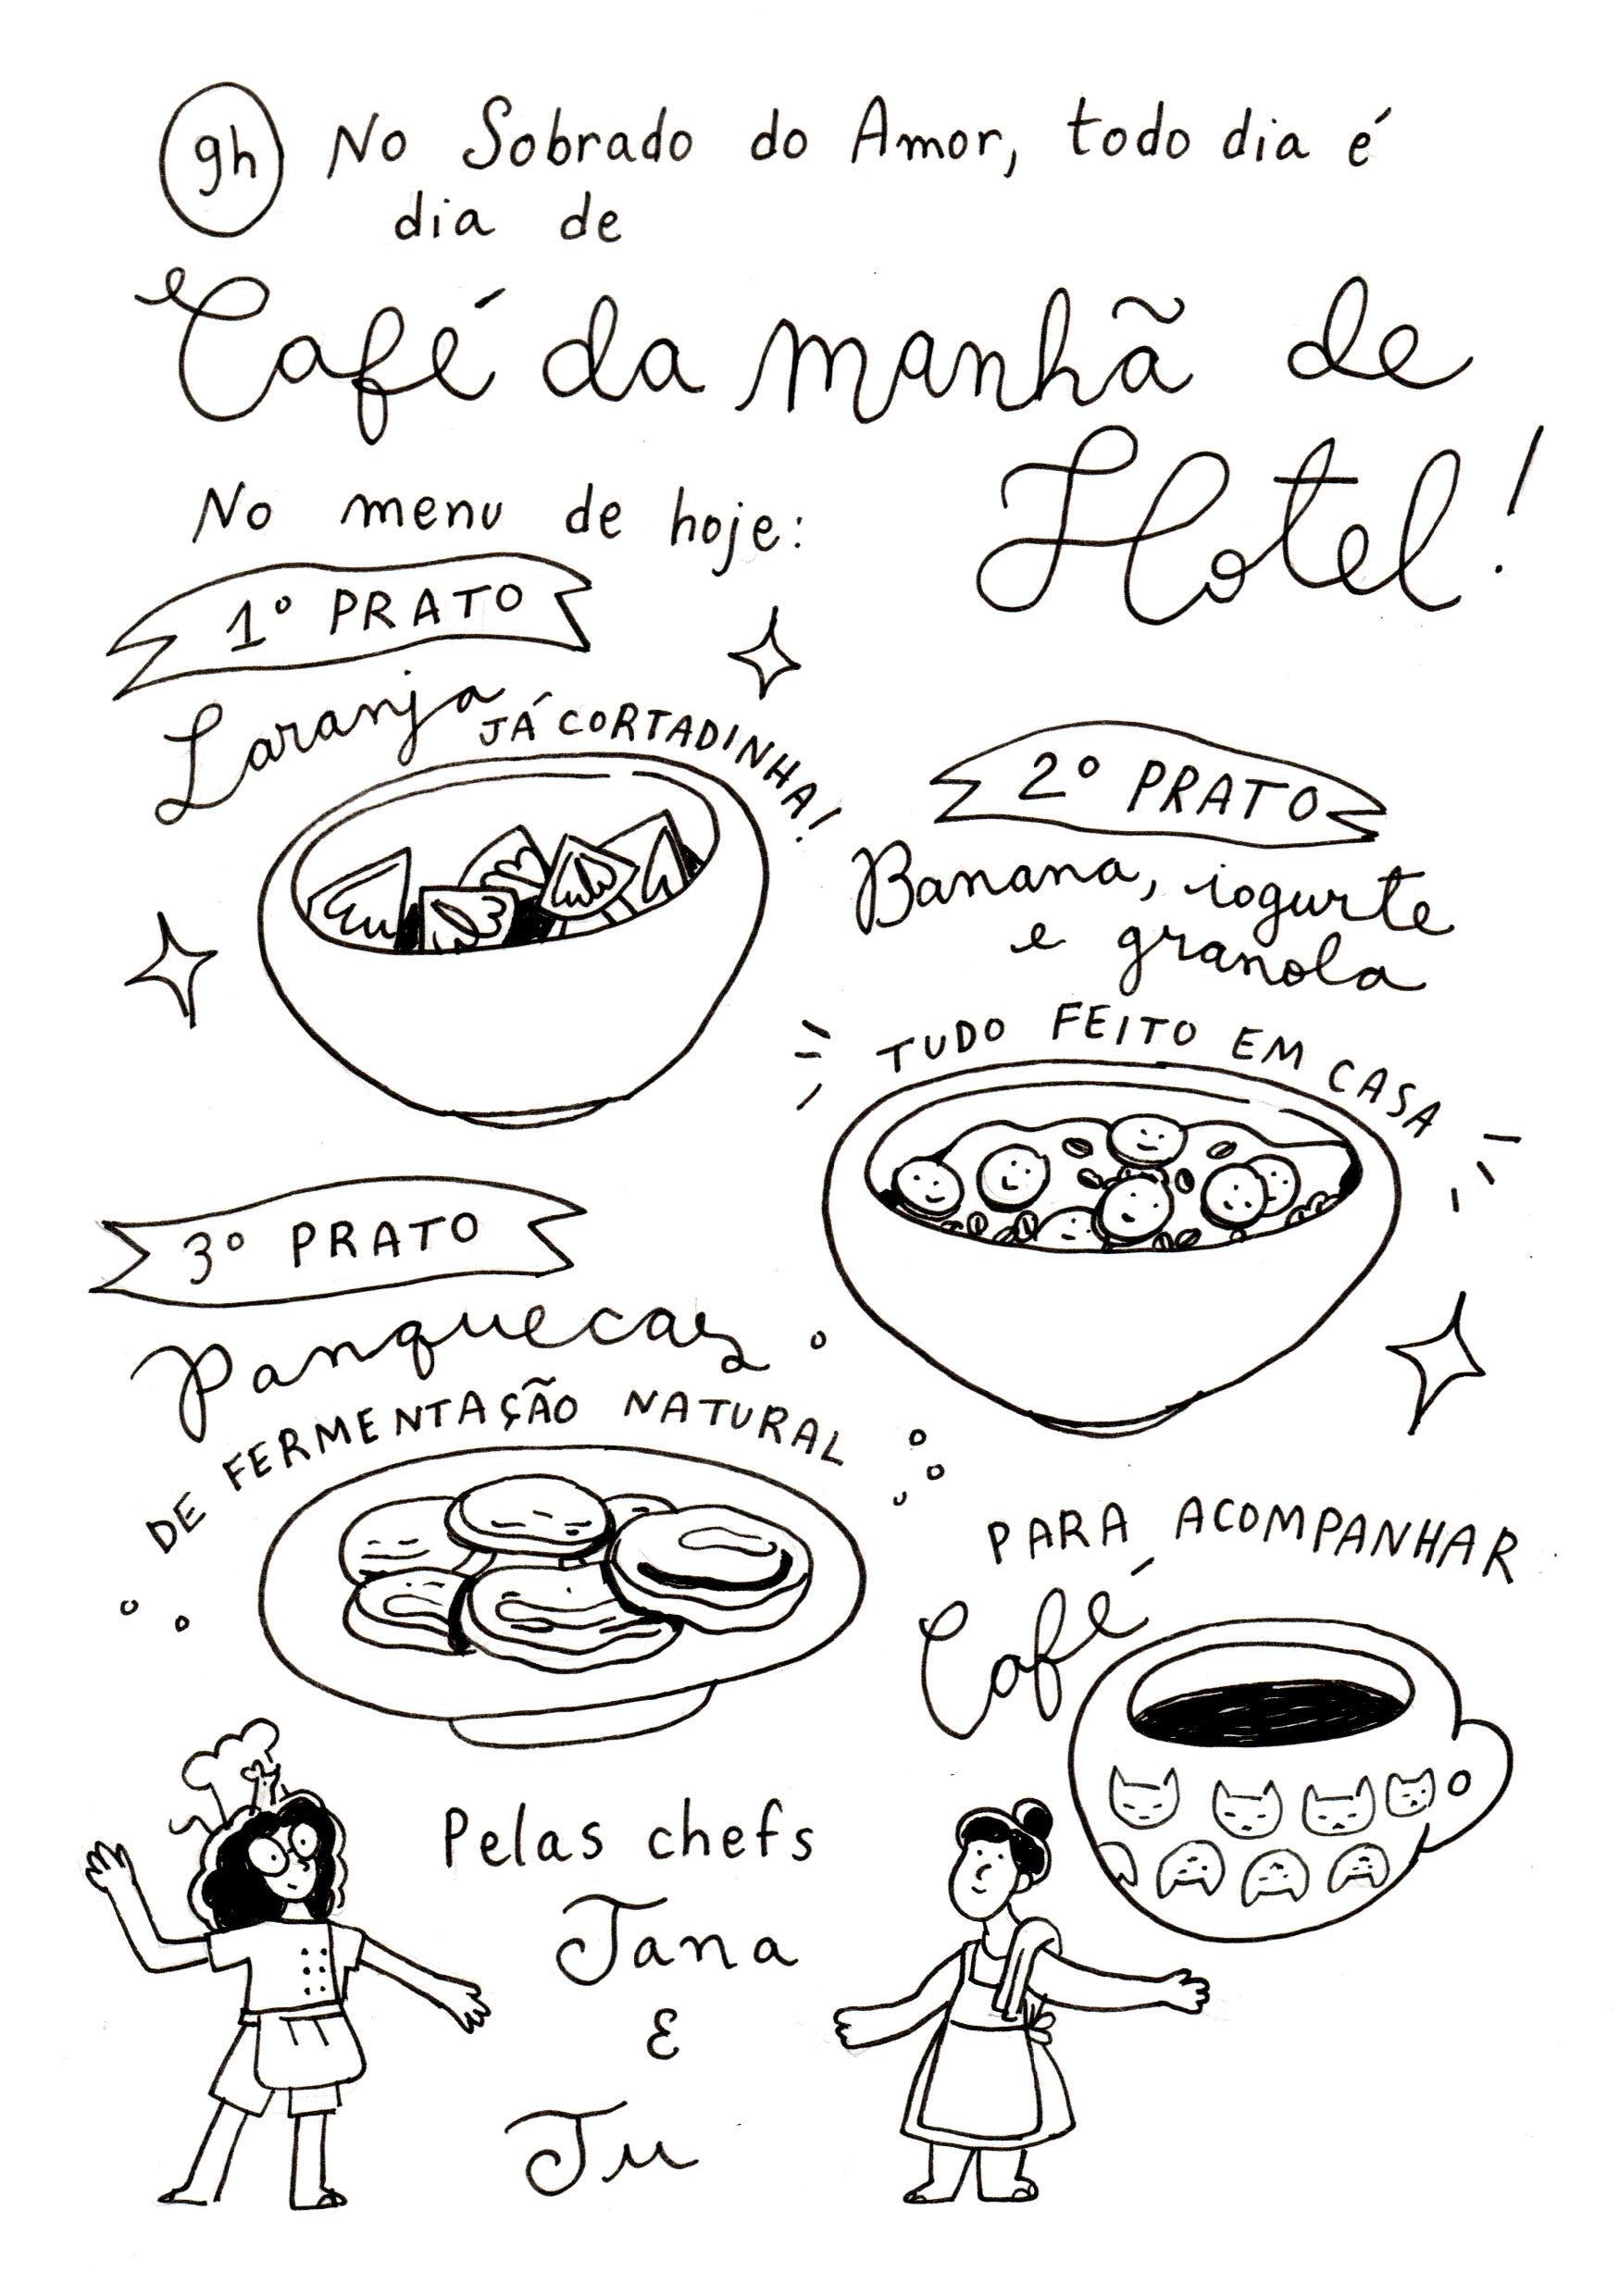 9h No Sobrado do Amor, todo dia é
dia de
Café da manhã de
Hotel!
No menu de hoje:
1º PRATO
Laranja JÁ CORTADINHA!
2º PRATO
Banana, iogurte
e granola
TUDO FEITO EM CASA
3º PRATO
Panquecas
DE FERMENTAÇÃO NATURAL
PARA ACOMPANHAR
Café
Pelas chefs
Jana
E
Ju